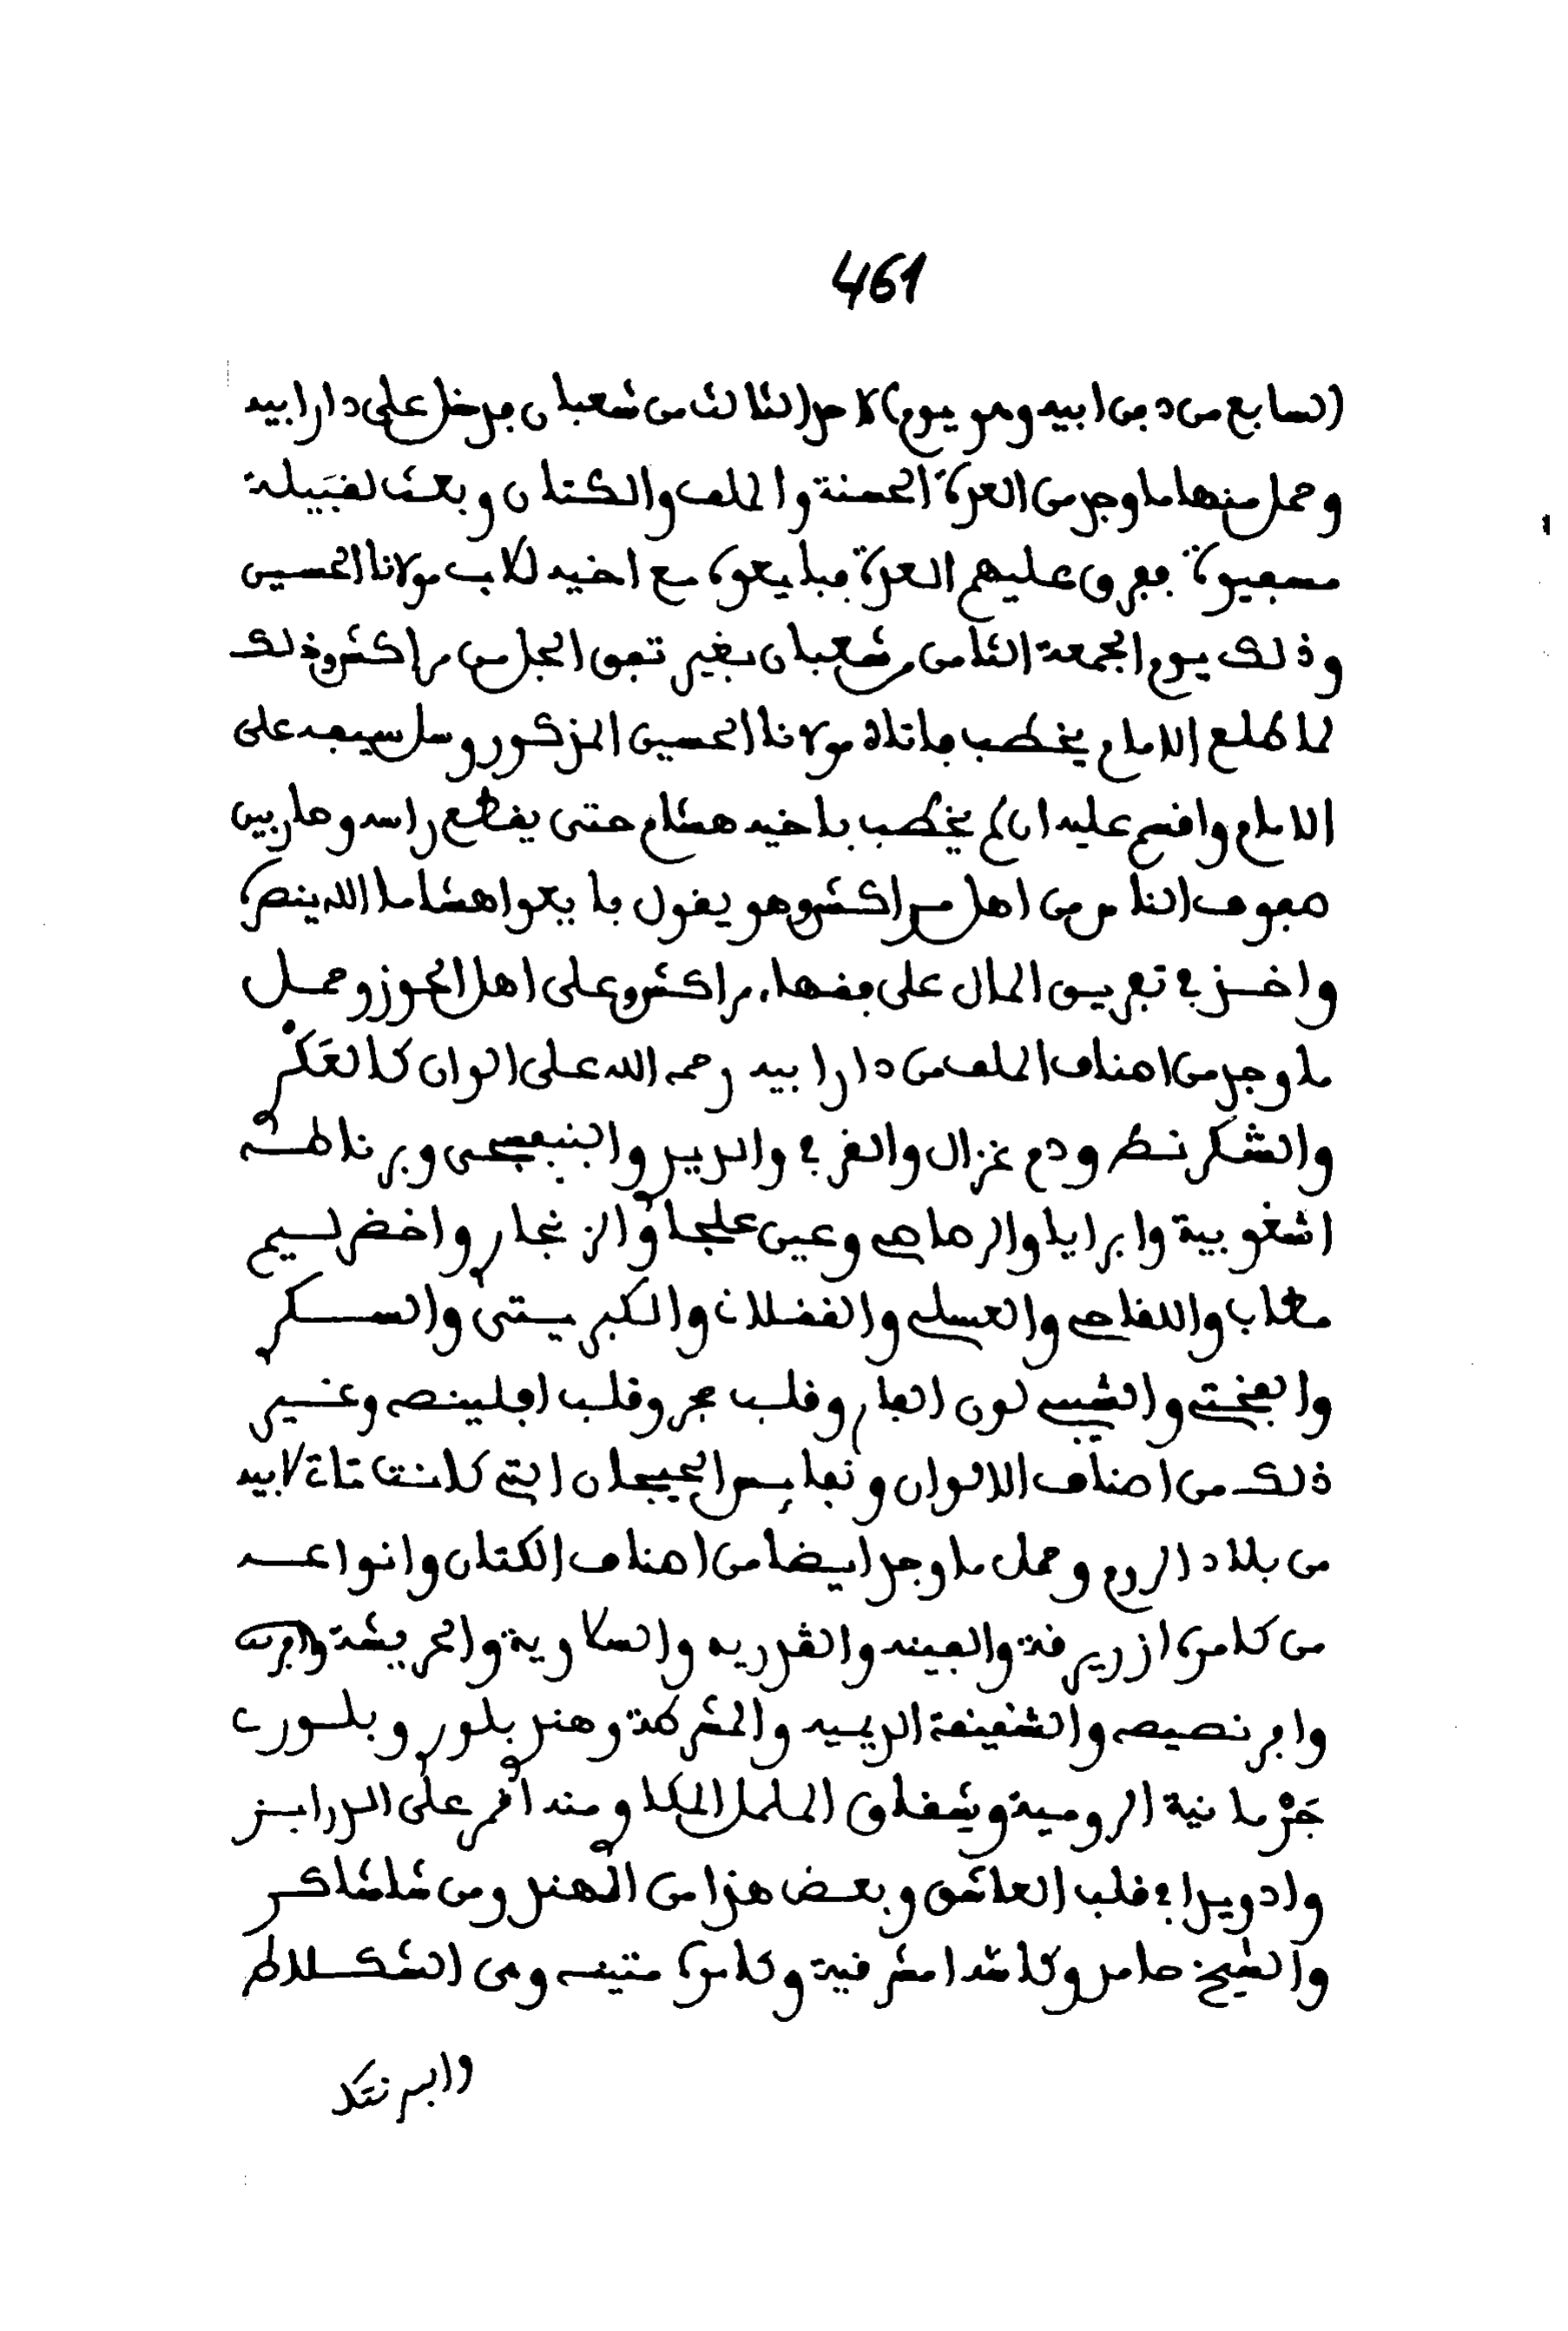 461
السابع من دفن ابيه وهو يوم الاحد الثالث من شعبان فدخل على دار ابيه
وحمل منها ما وجد من العدة الحسنة والملف والكتان وبعث لقبيلة
مسفيوة ففرق عليهم العدة فبايعوه مع اخيه للاب مولانا الحسين
وذلك يوم الجمعة الثامن من شعبان بغير توفق الجل من مراكش وذلك
لما طلع الامام يخطب فاتاه مولانا الحسين المذكور وسل سيفه على
الامام واقسم عليه ان لم يخطب باخيه هشام حتى يقطع راسه وصار بين
صفوف الناس من اهل مراكش وهو يقول بايعوا هشاما الله ينصره
واخذ في تفريق المال على فقهاء مراكش وعلى اهل الحوز وحمل
ما وجد من اصناف الملف من دار ابيه رحمه الله على الوان كالعكر
والشكرنط ودم غزال والقرفي والديدي والبنفسجي وبرناطشه
اشغوبية وابرايا والرصاصي وعين علجا والزنجار واخضر لسيم
مطاب والتفاحي والعسلي والقضلان والكبريتي والسكر
والفختي والشيبي لون الفار وقلب حجر وقلب افلينصه وغير
ذلك من اصناف الالوان ونفايس الجيجان التي كانت تاتي لابيه
من بلاد الروم وحمل ما وجد ايضا من اصناف الكتان وانواعه
من كامره ازريرقة والفينه والقدريه والسلاوية والحريشة
وابرنصيصه والشقيقة الريسيه والمشركة وهند بلور وبلور
جرمانية الرومية وشقاق الململ المكاومنه اقمر على الدرابز
وادويرا في قلب العاشق وبعض هذا من الهند ومن شاشاكر
والشيخ حامد وكاشه امشرقية وكامره متيفه ومن الشكلاط
وابرنتكد